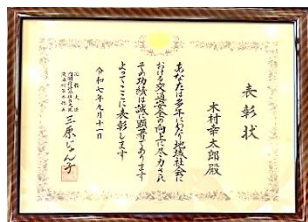 表彰状
木村幸太郎殿
あなたは多年にわたり地域社会に
おける交通安全の向上に尽力され
その功績は誠に顕著であります
よってここに表彰します
令和七年九月十一日
三原じゅん子